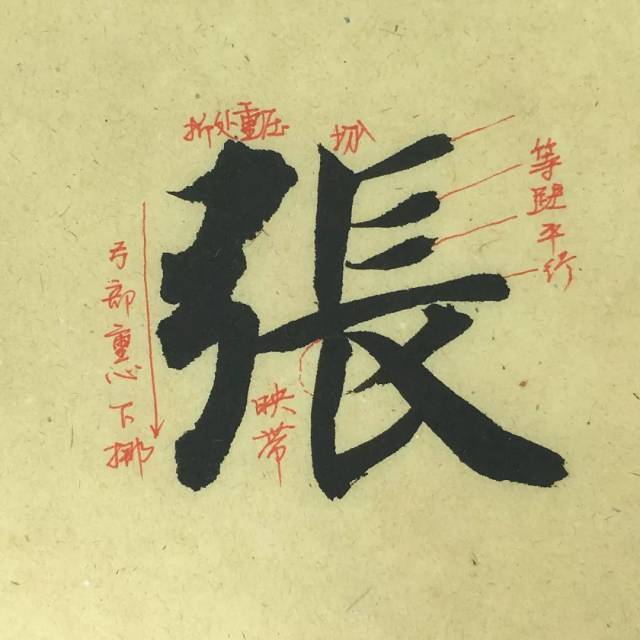 折处重压
切入
等距平行
張
弓部重心下挪
映带